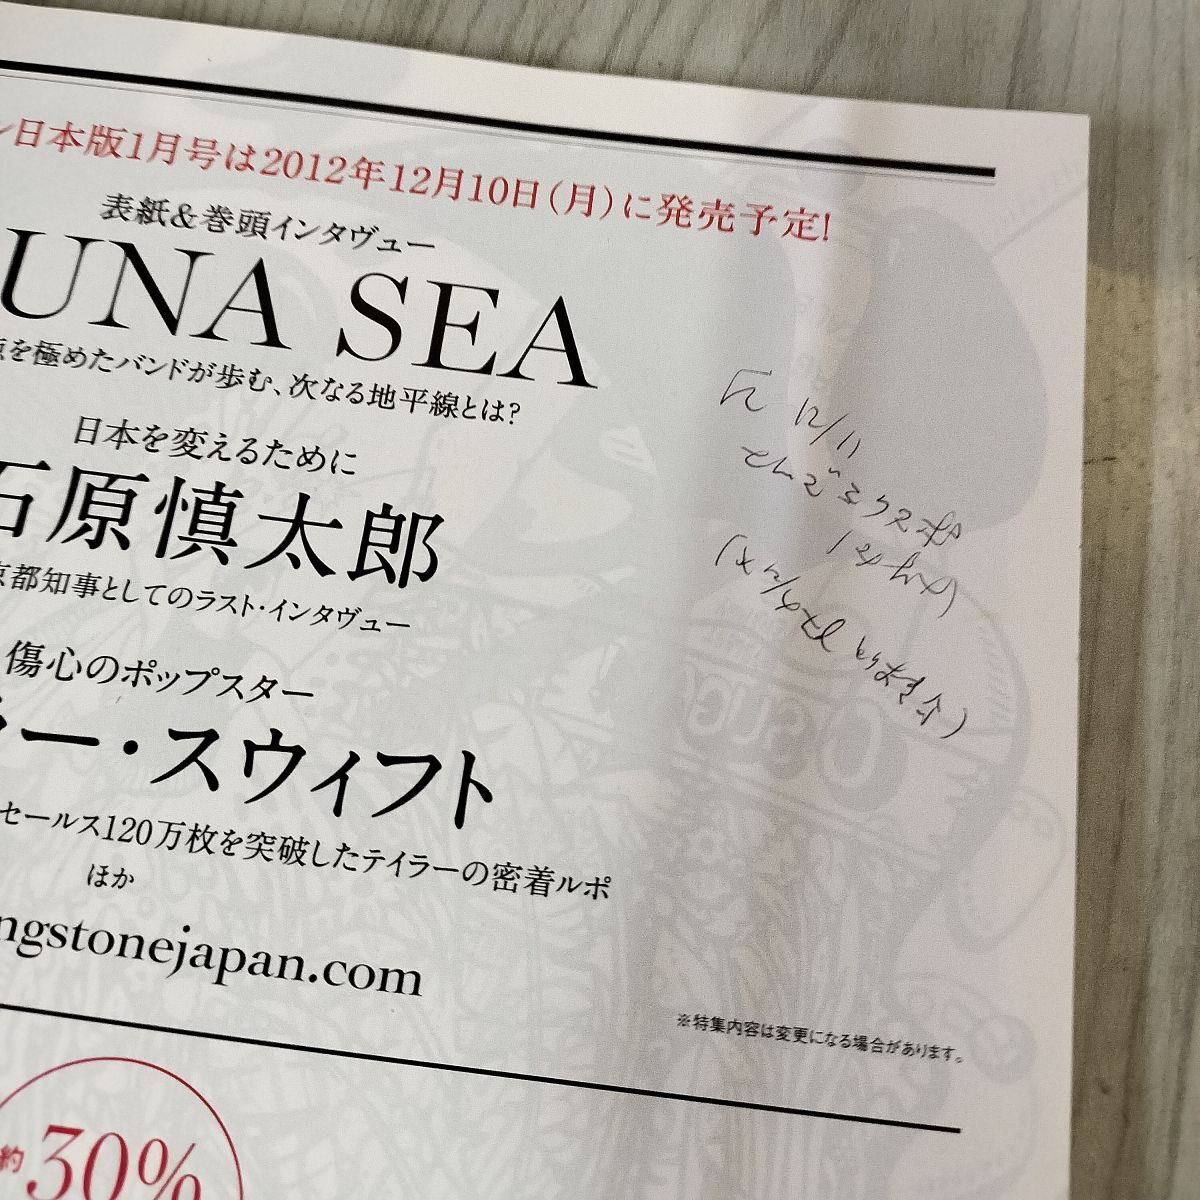 ン日本版1月号は2012年12月10日(月)に発売予定!
表紙&巻頭インタヴュー
UNA SEA
点を極めたバンドが歩む、次なる地平線とは?
日本を変えるために
石原慎太郎
京都知事としてのラスト・インタヴュー
傷心のポップスター
ラー・スウィフト
セールス120万枚を突破したテイラーの密着ルポ
ほか
ngstonejapan.com
12/11
※特集内容は変更になる場合があります。
約30%